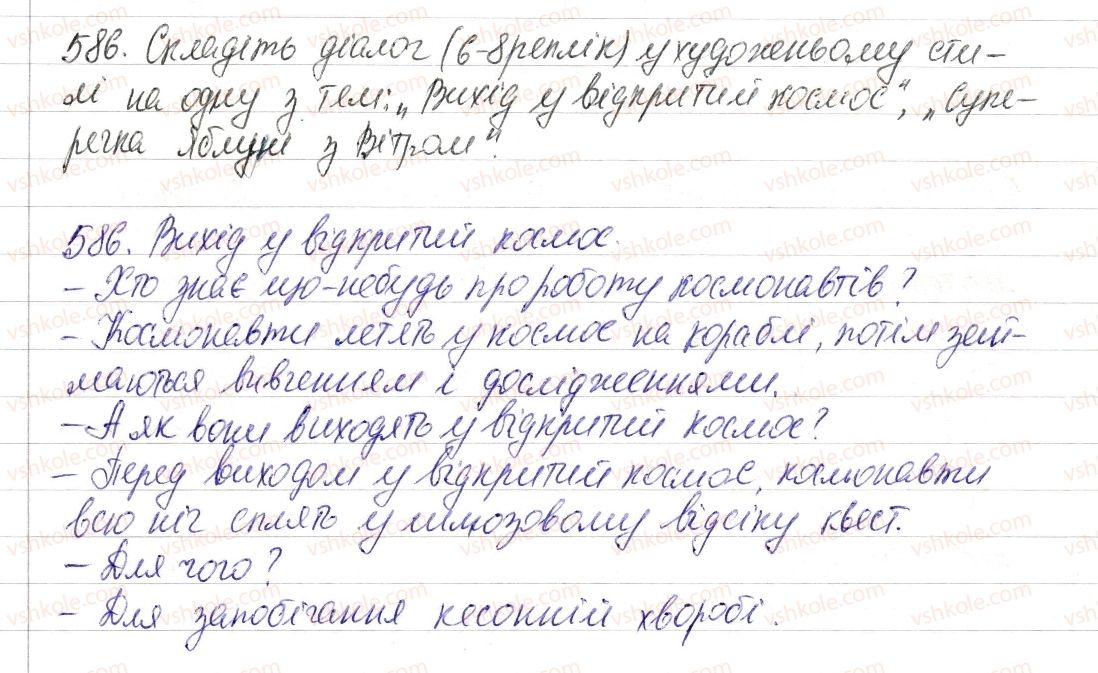 586. Складіть діалог (6-8 реплік) у художньому сти-
лі на одну з тем: „Вихід у відкритий космос", „Супе-
речка Яблуні з Вітром".
586. Вихід у відкритий космос.
– Хто знає що-небудь про роботу космонавтів?
– Космонавти летять у космос на кораблі, потім зай-
маються вивченням і дослідженнями.
– А як вони виходять у відкритий космос?
– Перед виходом у відкритий космос, космонавти
всю ніч сплять у шлюзовому відсіку квест.
– Для чого?
– Для запобігання кесонній хворобі.
vshkole.com